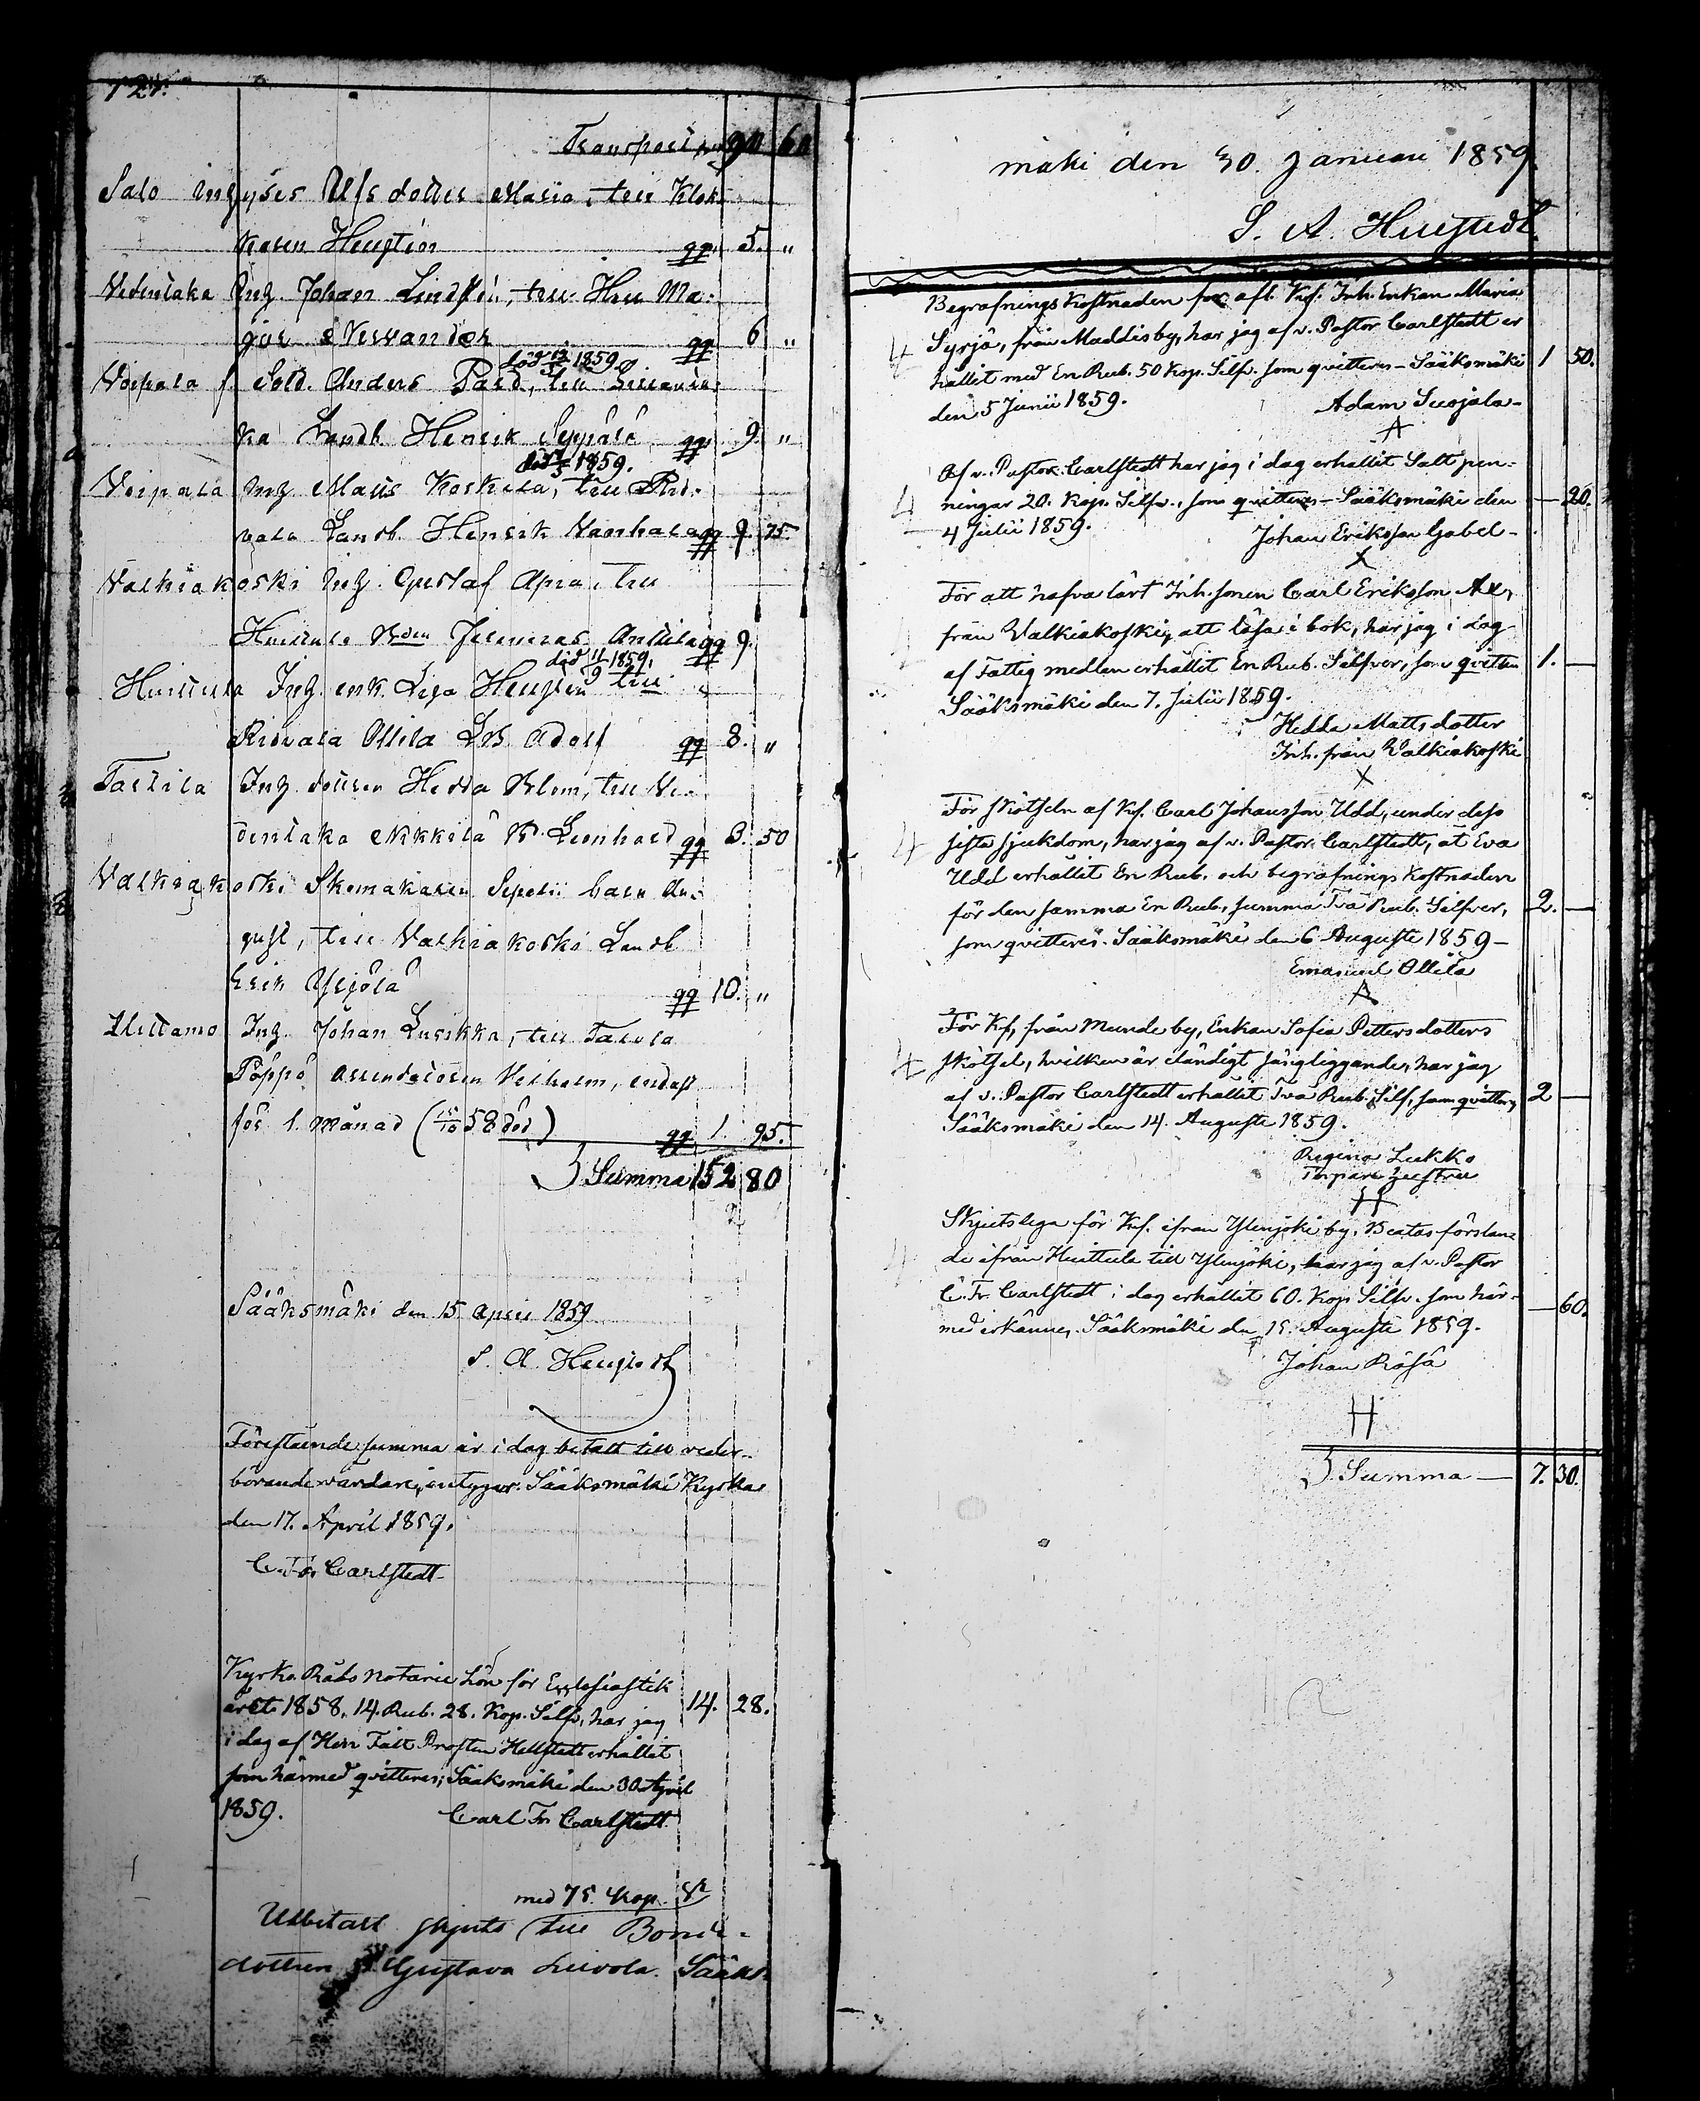 124.
Transport 90 60
Salo Inhyses Ulfs dotter Maria, till Klok-
karen Hengtión qq. 5. "
Vedentaka Inh. Johan till Herr Ma-
jor Nervander qq 6 "
död 1859
Voipala f. Sold. Anders Pard, till
ka Landb. Henrik Seppälä qq. 9. "
död 1859.
Voipala Inh. Matts Koskela, till Rit-
vala Landb. Henrik Vanhala qq 9. 75.
Valkiakoski Inh. Gustaf Apia, till
Huittula Bden Jeremias Anttila qq 9.
död 11/9 1859.
Huittula Inh. enk. Lisa till
Ritvala Ollila Adolf qq 8. "
Tarttila Inh. dottren Hedda Blom, till Ve-
dentaka Nikkilä Leonhard qq 3. 50
Valkiakoski Skomakaren barn Au-
gust, till Valkiakoski Landb
Erik Yrjölä qq 10. "
Uittamo Inh. Johan Lusikka, till
Pöppö Arrendatoren Vilhelm, endast
för 1. Månad (15/10 58 död) qq 1. 95.
Summa 152 80
Sääksmäki den 15 April 1859
S. A.
Förestående summa är i dag betalt till veder-
börande vårdare, intygar. Sääksmäki Kyrka
den 17. April 1859.
C. Fr. Carlstedt
Kyrko Råds Notarie Lön för Ecclesiastik
året 1858, 14. Rub. 28. Kop. Silfv, har jag 14. 28.
i dag af Herr Fält Prosten Hellstedt erhållit
som härmed qvitteras; Sääksmäki den 30 April
1859. Carl Fr. Carlstedt
med 75. Kop. Sr
Utbetalt skjuts till Bonde-
dottren Gustava Liivola. Sääks-
mäki den 30. Januari 1859.
S. A.
Begrafnings Kostnaden för afl. Kf. Inh. Enkan Maria
Syrjä, från Maddisby, har jag af v. Pastor Carlstedt er
hållit med En Rub. 50 Kop. Silfv. som qvitteras – Sääksmäki 1 50.
den 5 Junii 1859. Adam Suojala
Af v. Pastor Carlstedt har jag i dag erhållit Salt pen-
ningar 20. Kop. Silfv., som qvitteras – Sääksmäki den — 20.
4 Julii 1859. Johan Eriksson Gabel
X
För att hafva lärt Inh. sonen Carl Eriksson
från Walkiakoski, att läsa i bok, har jag i dag
af Fattig medlen erhållit En Rub. Silfver, som qvitteras 1. —
Sääksmäki den 7. Julii 1859.
Hedda Mattsdotter
Inh. från Walkiakoski
X
För skötseln af Kf. Carl Johansson Udd, under dess
sista sjukdom, har jag af v. Pastor Carlstedt, åt Eva
Udd erhållit En Rub. och begrafnings kostnaden
för den samma En Rub, summa Två Rub. Silfver, 2. —
som qvitteres. Sääksmäki den 6 Augusti 1859 –
Emanuel Ollila
För Kf. från Munde by, Enkan Sofia Pettersdotters
skötsel, hvilken är ständigt sängliggande, har jag
af v. Pastor Carlstedt erhållit Två Rub. Silf, som qvitteras 2 —
Sääksmäki den 14. Augusti 1859.
Regina Lukko
Torpare hustru
H
Skjutslega för Kf. ifrån Ylenjöki by, Beatas förslan-
de ifrån Huittula till Ylenjöki, har jag af v. Pastor
C. Fr. Carlstedt i dag erhållit 60. Kop. Silfv. som här- — 60.
med erkännes. Sääksmäki den 15. Augusti 1859.
Johan Räsä
H
Summa — 7. 30.